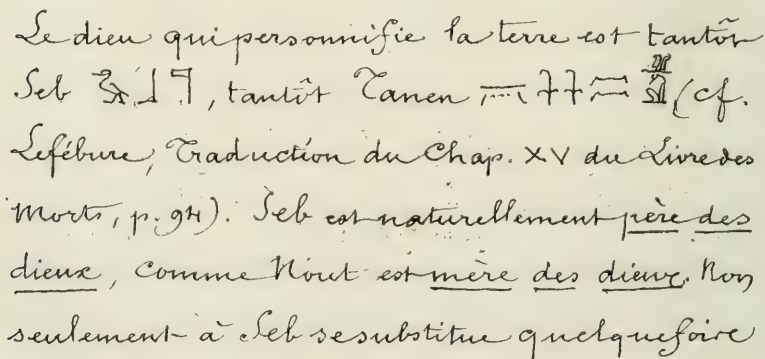 Le dieu qui personnifie la terre est tantôt
Seb 𓅬𓃀𓊹, tantôt Tanen (cf.
Lefébure, Traduction du Chap. XV du Livre des
Morts, p. 94). Seb est naturellement père des
dieux, comme Nout est mère des dieux. Non
seulement à Seb se substitue quelquefois